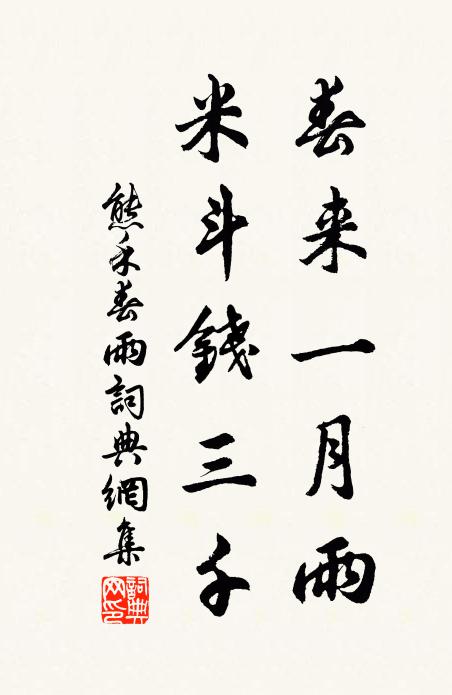 春来一月雨
米斗錢三千
熊禾春雨詞典網集
詞典
网印